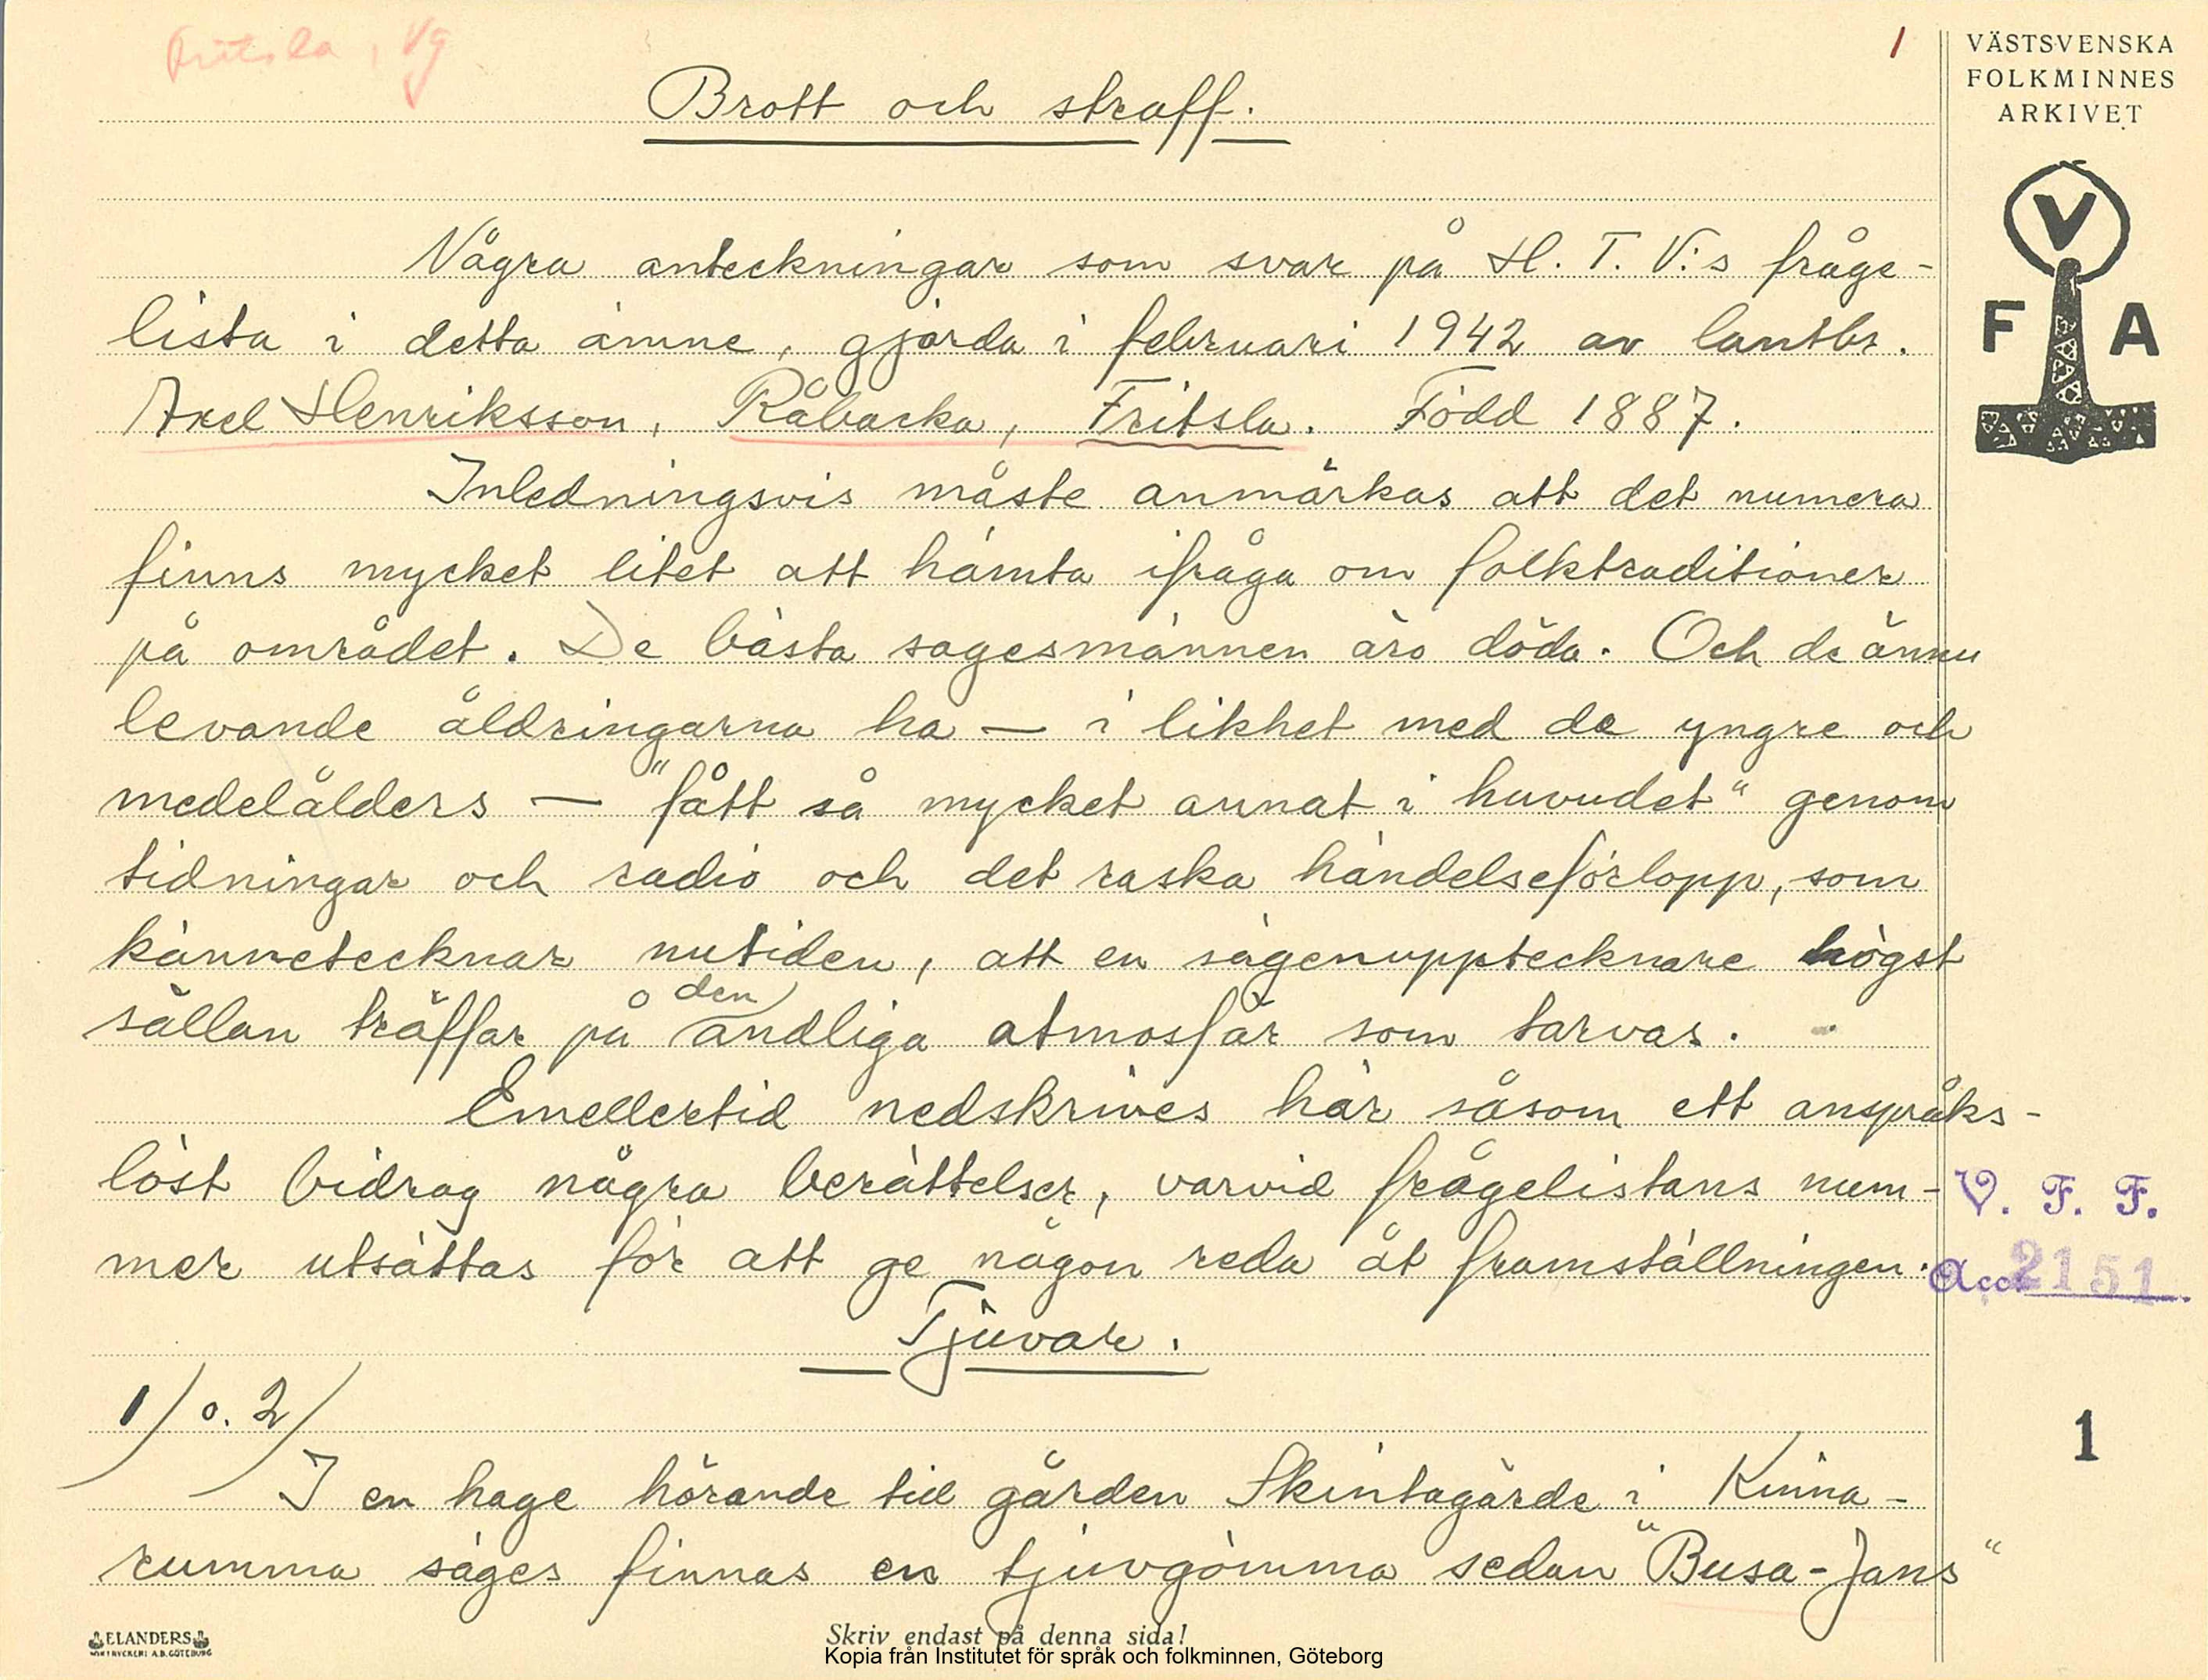 Fritsla, Vg
1
VÄSTSVENSKA
FOLKMINNES
ARKIVET
V
F A
Brott och straff.
Några anteckningar som svar på H. T. V:s fråge-
lista i detta ämne, gjorda i februari 1942 av lantbr.
Axel Henriksson, Råbacka, Fritsla. Född 1887.
Inledningsvis måste anmärkas att det numera
finns mycket litet att hämta ifråga om folktraditioner
på området. De bästa sagesmännen äro döda. Och de ännu
levande åldringarna ha — i likhet med de yngre och
medelålders — "fått så mycket annat i huvudet" genom
tidningar och radio och det raska händelseförlopp, som
kännetecknar nutiden, att en sägenupptecknare högst
sällan träffar på den andliga atmosfär som tarvas.
Emellertid nedskrives här såsom ett anspråks-
löst bidrag några berättelser, varvid frågelistans num-
mer utsättas för att ge någon reda åt framställningen.
V. F. F.
Acc. 2151
Tjuvar.
1/ o. 2/
1
I en hage hörande till gården Skintagärde i Kinna-
rumma säges finnas en tjuvgömma sedan "Busa-Jans"
ELANDERS
BOKTRYCKERI A.B. GÖTEBORG
Skriv endast på denna sida!
Kopia från Institutet för språk och folkminnen, Göteborg